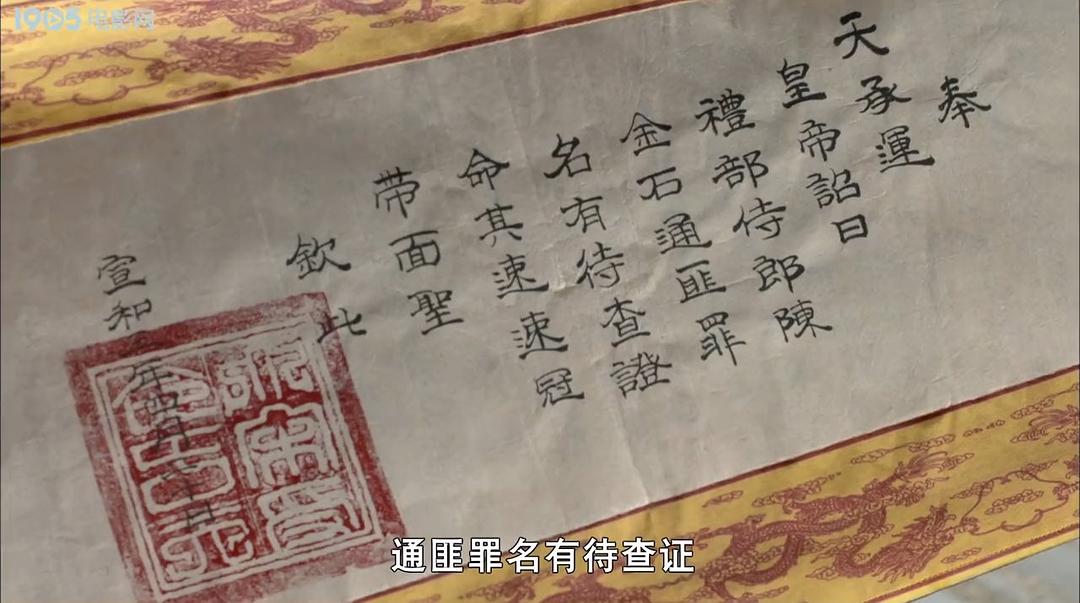 1905电影网
奉
天承運
皇帝詔曰
禮部侍郎陳
金石通匪罪
名有待查證
命其速速冠
带面聖
欽此
宣和年四月
通匪罪名有待查证